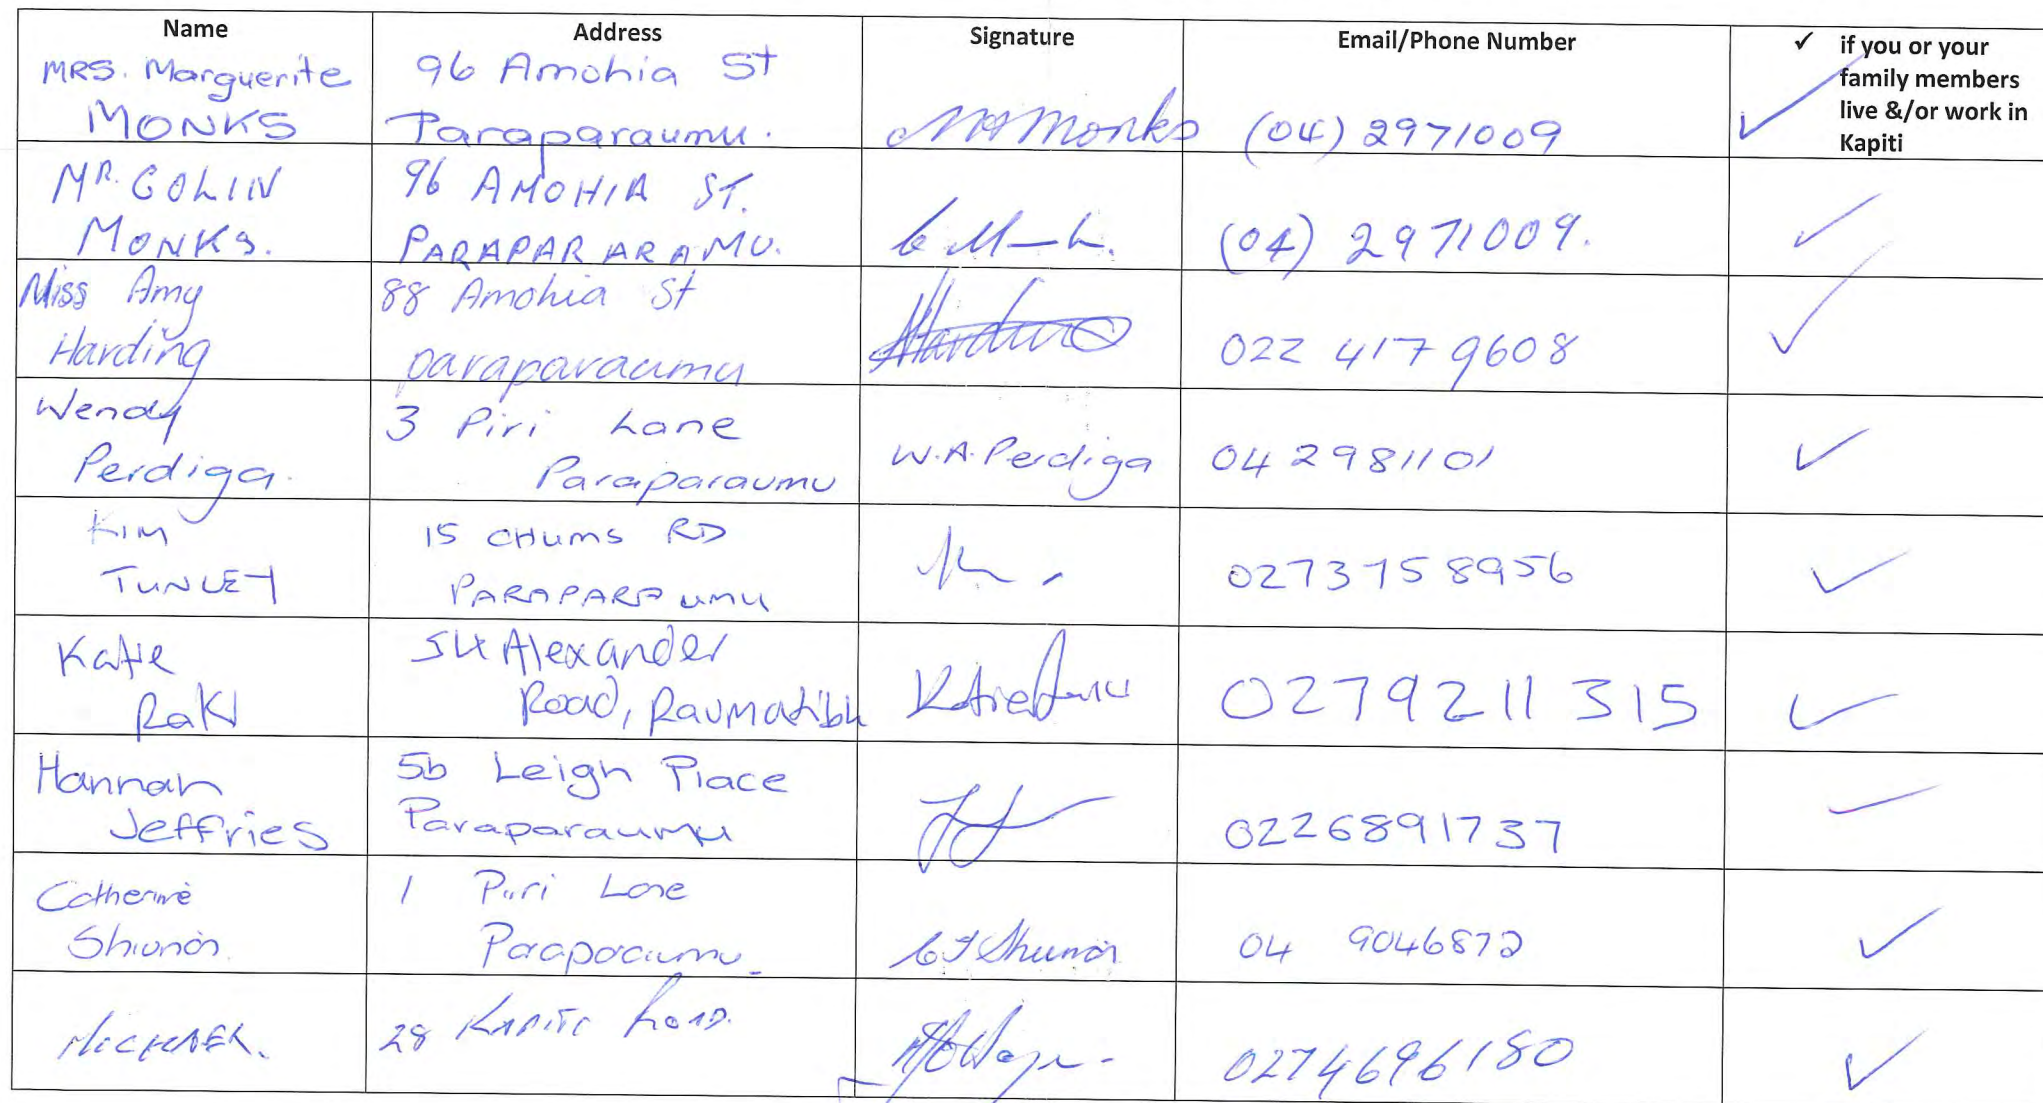 Name Address Signature Email/Phone Number ✓ if you or your
family members
live &/or work in
Kapiti
MRS. Marguerite
MONKS
96 Amohia St
Paraparaumu.
MA Monks
(04) 2971009
✓
MR. COLIN
MONKS.
96 AMOHIA ST.
PARAPARARAMU.
(04) 2971009.
✓
Miss Amy
Harding
88 Amohia St
paraparaumu
022 417 9608
✓
Wendy
Perdiga.
3 Piri Lane
Paraparaumu
W.A. Perdiga
04 2981101
✓
KIM
TUNLEY
15 CHUMS RD
PARAPARAUMU
0273758956
✓
Katie
Raki
Alexander
Road, Raumati
0279211315
✓
Hannah
Jeffries
5b Leigh Place
Paraparaumu
0226891737
✓
Catherine
1 Piri Lane
Paraparaumu.
04 9046872
✓
MICHAEL.
28 KAPITI ROAD.
0274696180
✓